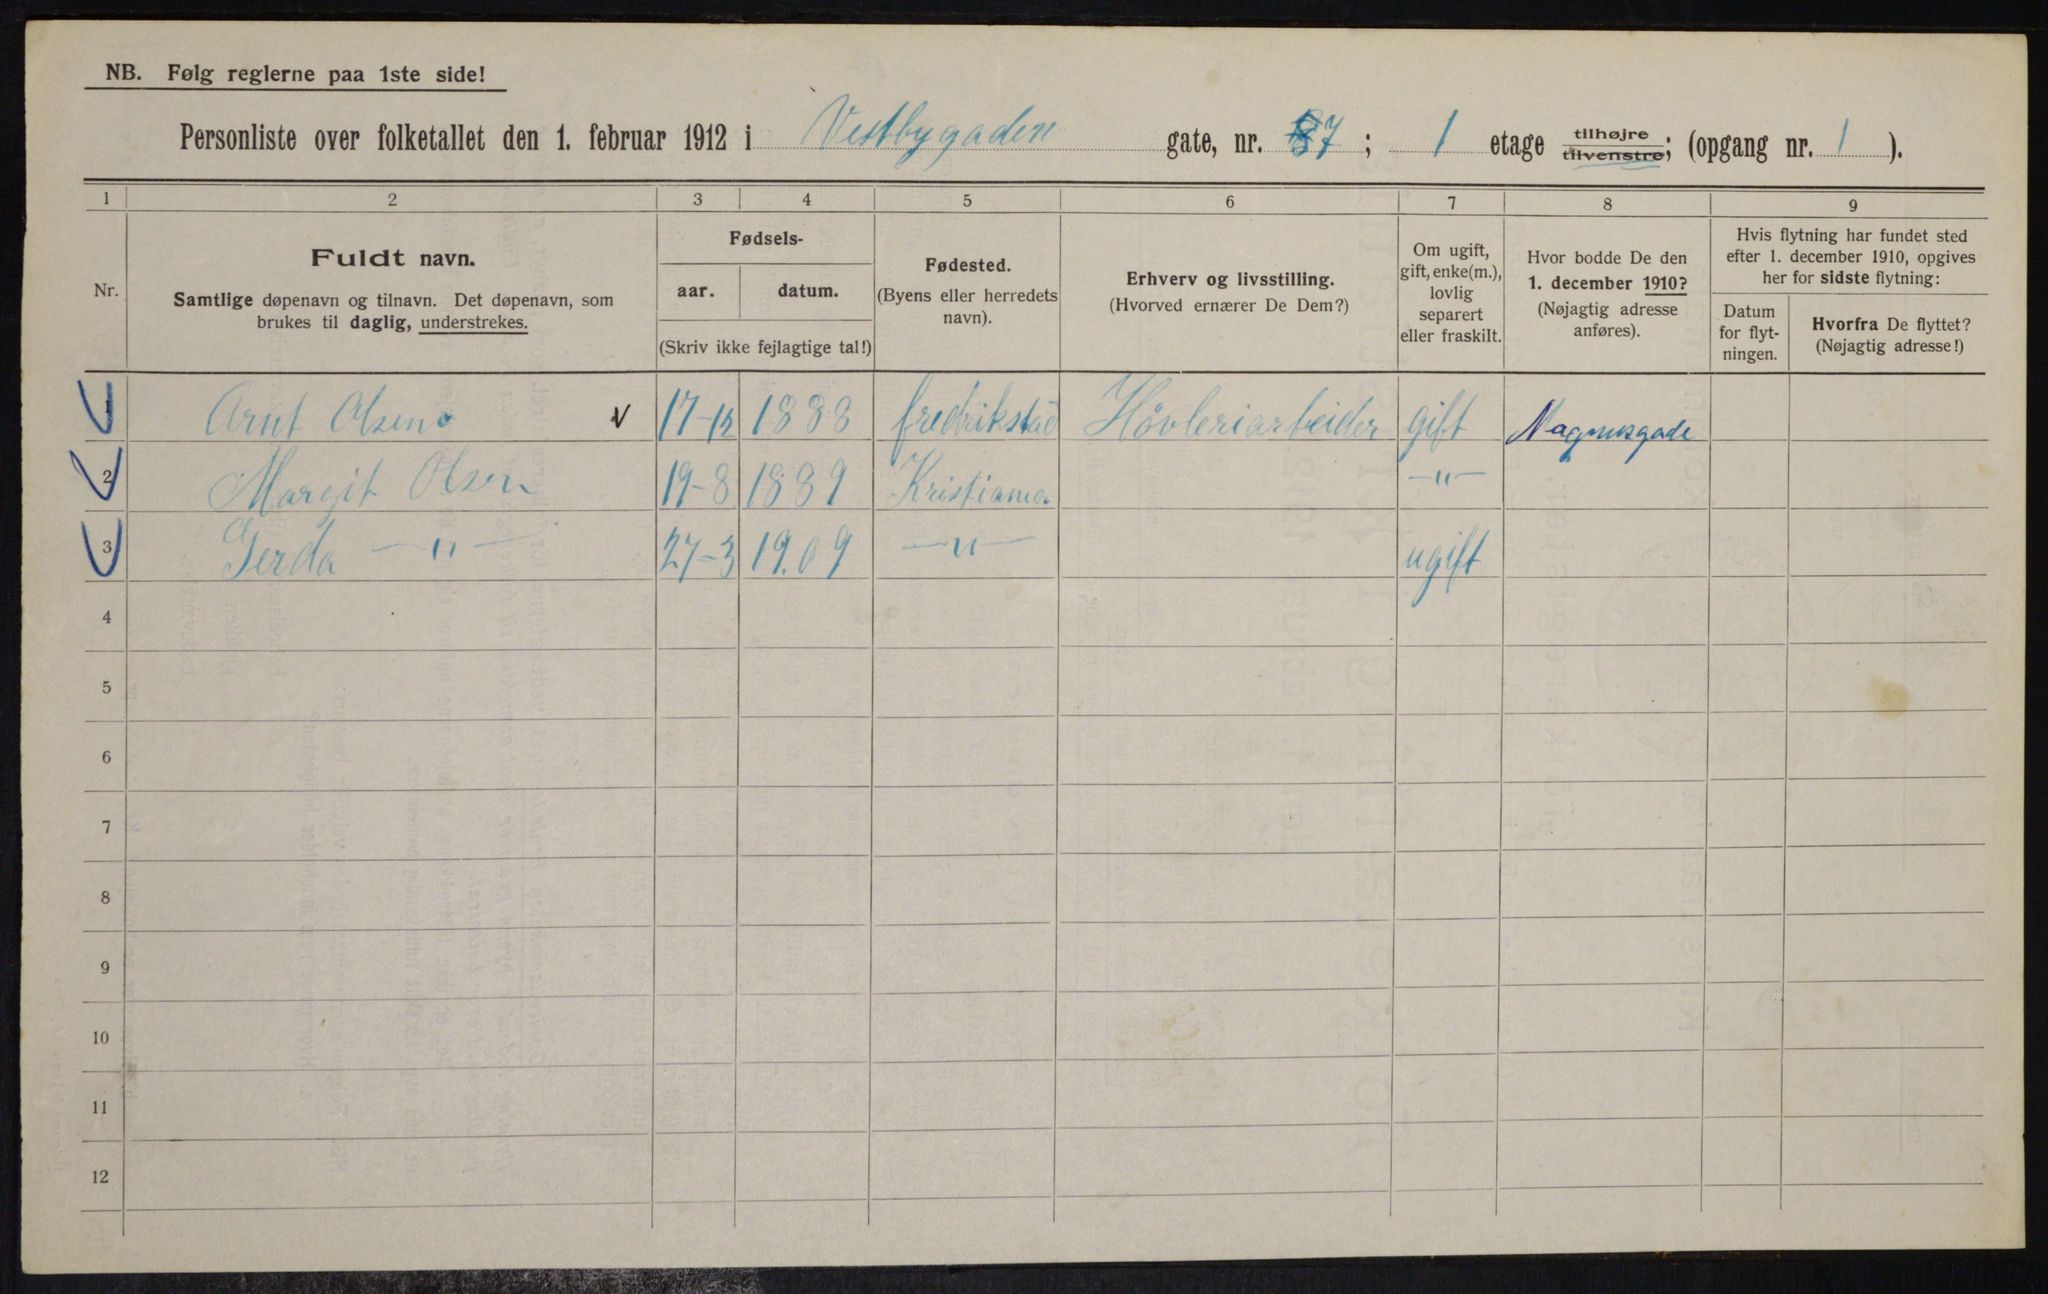 NB. Følg reglerne paa 1ste side!
Personliste over folketallet den 1. februar 1912 i Vestbygaden gate, nr. 7; 1 etage tilhøjre tilvenstre; (opgang nr. 1).
1 2 3 4 5 6 7 8 9
Nr.
Fuldt navn.
Samtlige døpenavn og tilnavn. Det døpenavn, som
brukes til daglig, understrekes.
Fødsels-
aar. datum.
(Skriv ikke fejlagtige tal!)
Fødested.
(Byens eller herredets
navn).
Erhverv og livsstilling.
(Hvorved ernærer De Dem?)
Om ugift,
gift, enke(m.),
lovlig
separert
eller fraskilt.
Hvor bodde De den
1. december 1910?
(Nøjagtig adresse
anføres).
Hvis flytning har fundet sted
efter 1. december 1910, opgives
her for sidste flytning:
Datum
for flyt-
ningen.
Hvorfra De flyttet?
(Nøjagtig adresse!)
1 Arnt Olsen v 17-12 1888 fredrikstad Hövleriarbeider gift Magnusgade
2 Margit Olsen 19-8 1889 Kristiania —"—
3 Gerda —"— 27-3 19.09 —"— ugift
4
5
6
7
8
9
10
11
12